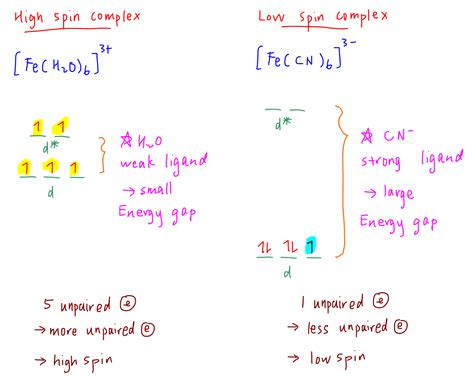 High spin complex
[Fe(H₂O)₆]³⁺
1 1
d*
1 1 1
d
☆ H₂O
weak ligand
→ small
Energy gap
5 unpaired ⓔ
→ more unpaired ⓔ
→ high spin
Low spin complex
[Fe(CN)₆]³⁻
d*
☆ CN⁻
strong ligand
→ large
Energy gap
1L 1L 1
d
1 unpaired ⓔ
→ less unpaired ⓔ
→ low spin